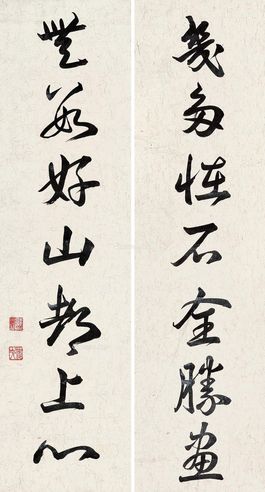 幾多怪石全勝畫
無數好山都上心